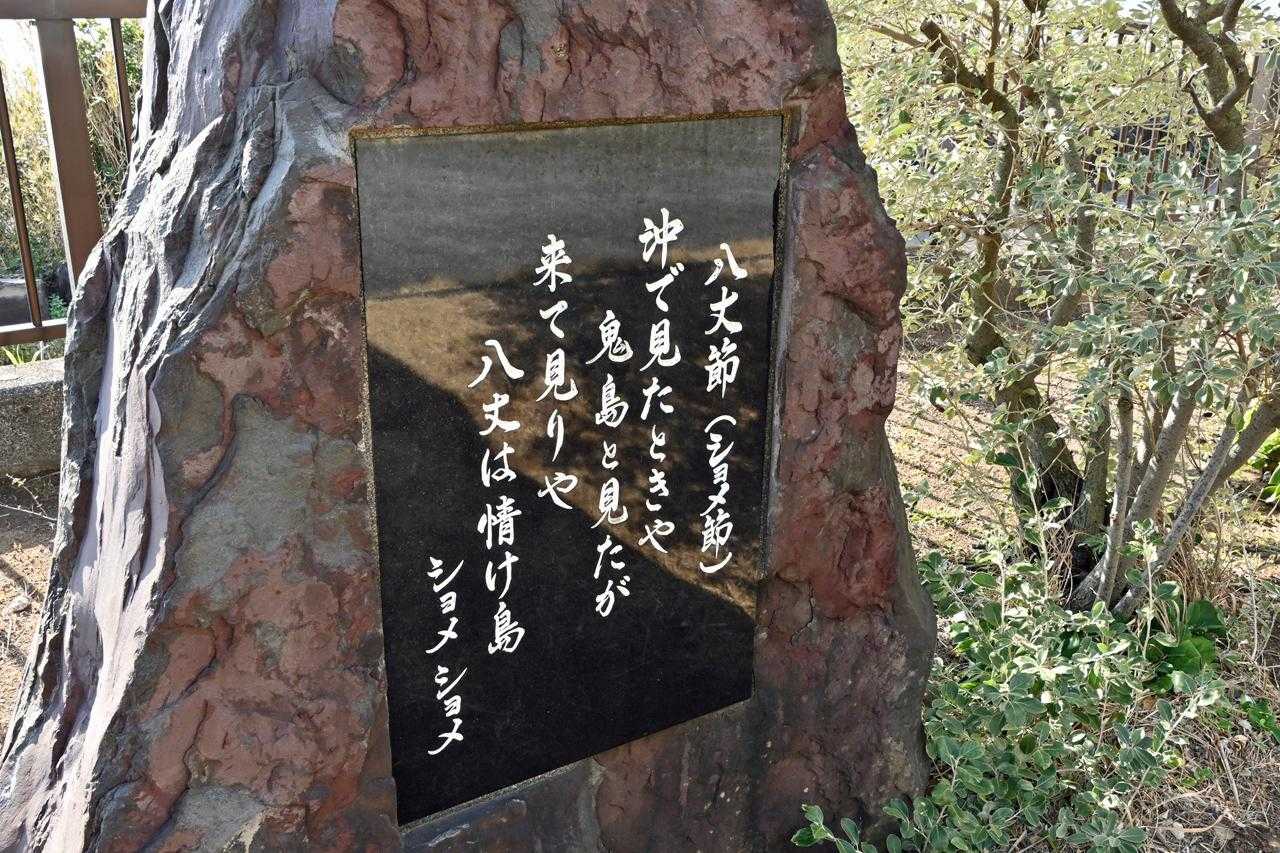 八丈節(ショメ節)
沖で見たときや
鬼島と見たが
来て見りや
八丈は情け島
ショメ ショメ